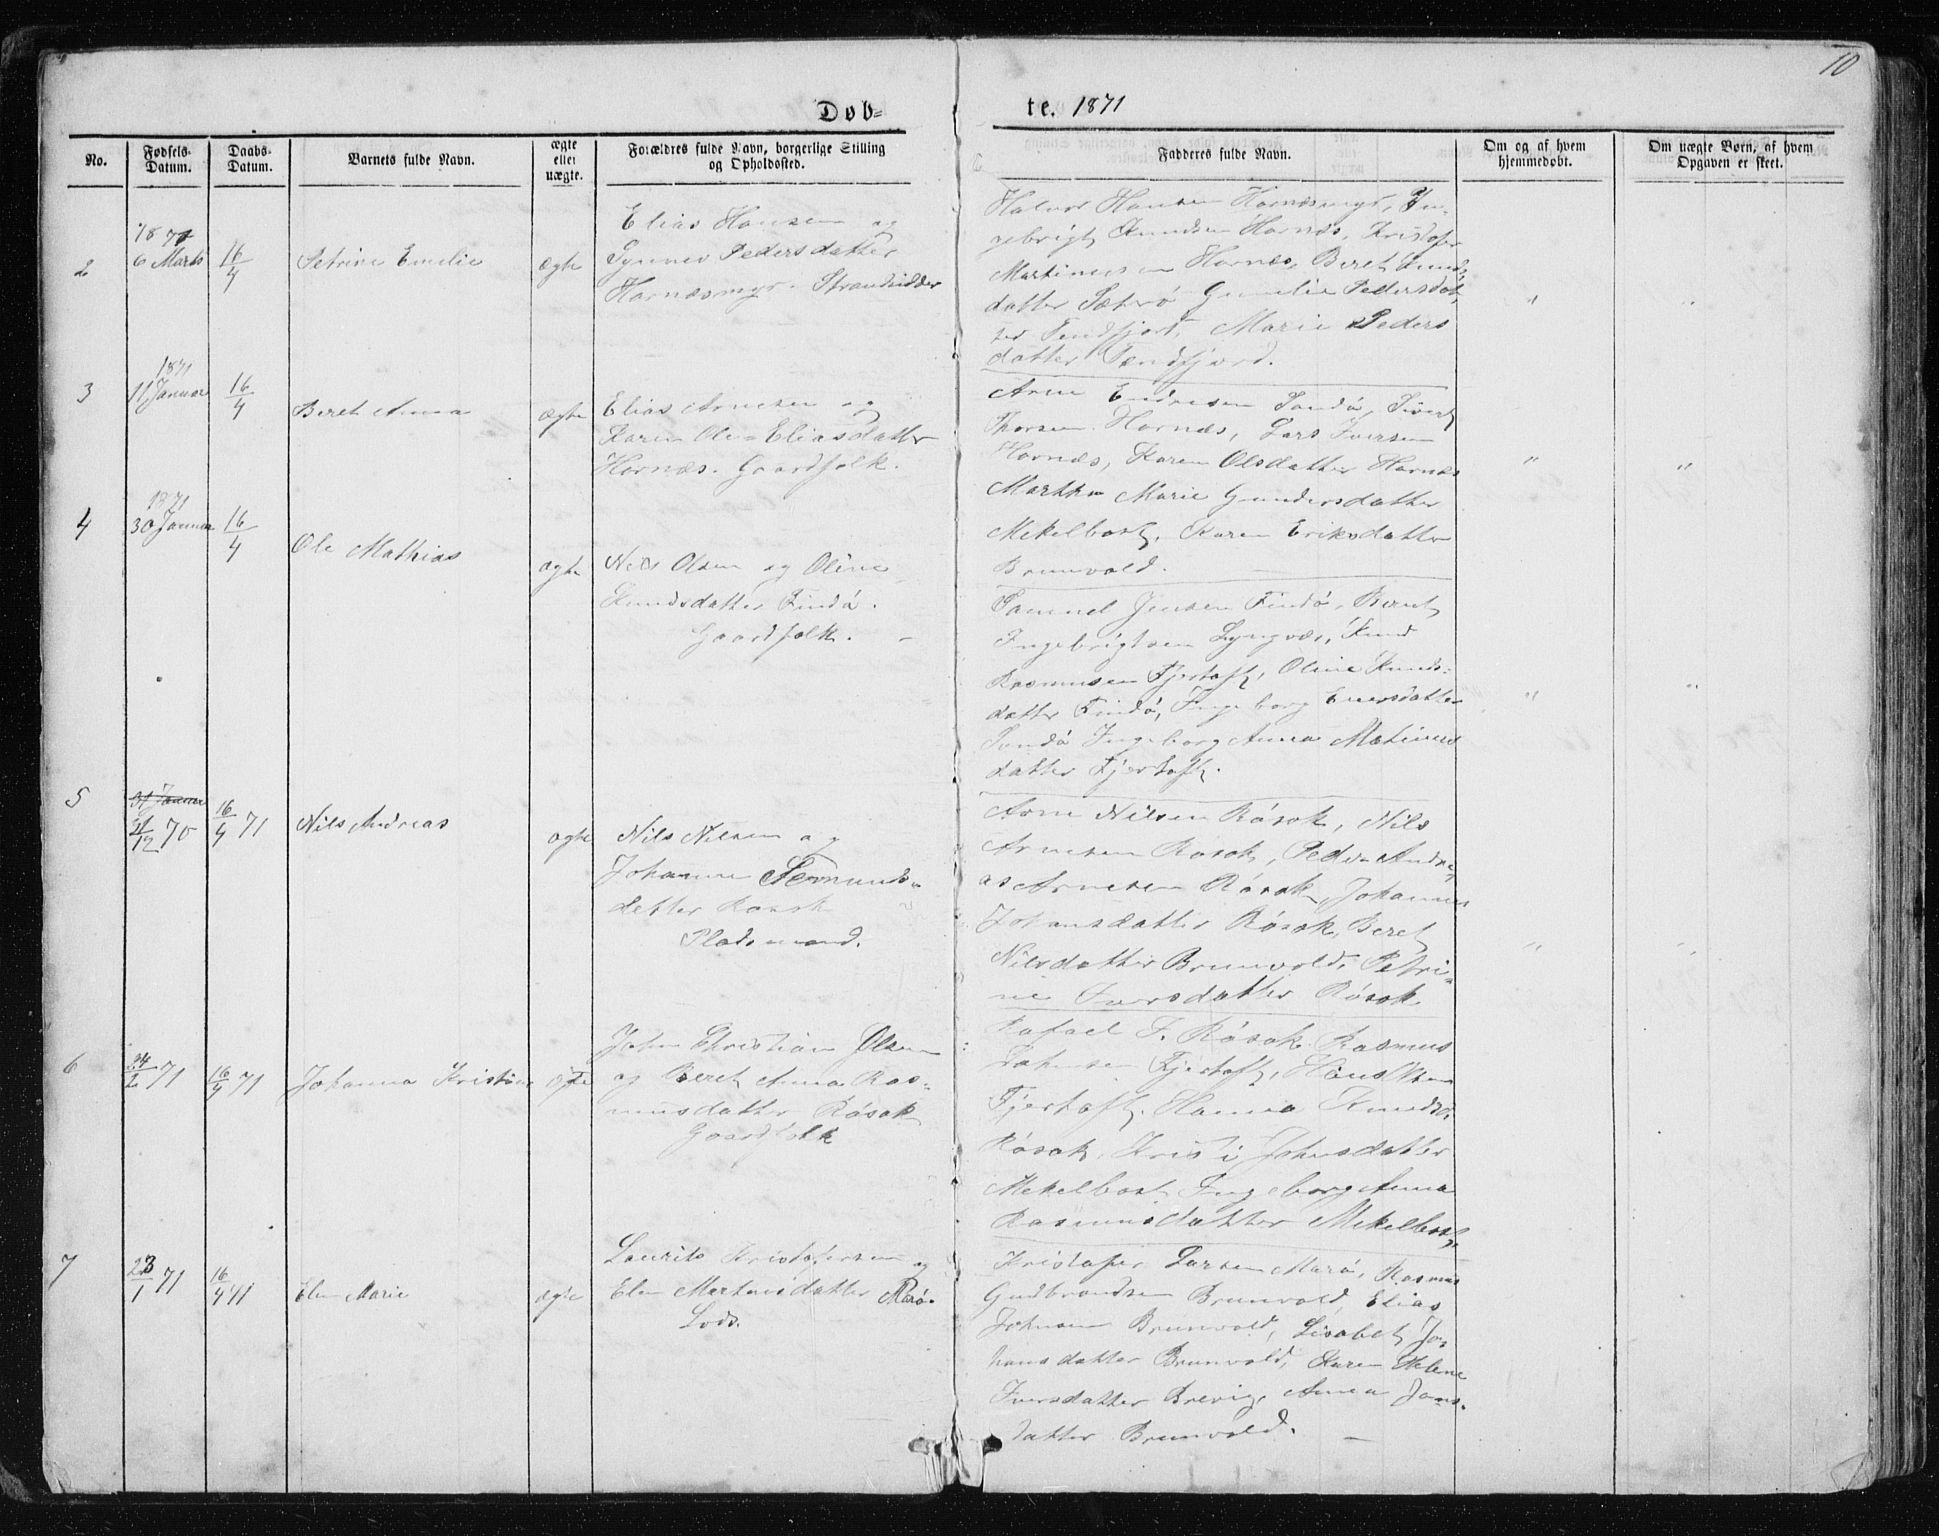 10
Døb-
te. 1871
No.
Fødsels-
Datum.
Daabs-
Datum.
Barnets fulde Navn.
ægte
eller
uægte.
Forældres fulde Navn, borgerlige Stilling
og Opholdssted.
Faddernes fulde Navn.
Om og af hvem
hjemmedøbt.
Om uægte Børn, af hvem
Opgaven er skeet.
2
1871
6 Marts
16/4
Petrine Emelie
ægte
Elias Hansen og
Pedersdatter
Harnæsmyr. Strandsidder
Halvor Hansen Harnæsmyr, In-
gebrigt Knudsen Harnæs, Kristofer
Martinussen Harnæs, Beret Knuds
datter Sætrø Pedersdat
ter Tendfjord, Marie Peders
datter Tændfjord.
"
"
3
1871
11 Januar
16/4
Beret Anna
ægte
Elias Arnesen og
Karen Ole-Eliasdatter
Harnæs. Gaardfolk.
Arne Endresen Sandø, Sivert
Thorsen Harnæs, Lars Iversen
Harnæs, Karen Olsdatter Harnæs
Martha Marie Gundersdatter
Mekelbost, Karen Eriksdatter
Brunvold.
"
"
4
1871
30 Januar
16/4
Ole Mathias
ægte
Nils Olsen og Oline
Knudsdatter Findø.
Gaardfolk. –
Samuel Jensen Findø, Bernt
Ingebrigtsen Lyngvær, Knud
Rasmussen Fjertoft, Oline Knuds-
datter Findø, Ingeborg Eversdatter
Sandø Ingeborg Anna Matinus
datter Fjertoft.
"
"
5
31 Januar
21/12 70
16/4 71
Nils Andreas
ægte
Nils Nilsen og
Johanne
datter Røsok
Pladsmand.
Arne Nilsen Røsok, Nils
Arnesen Røsok, Peder Andre-
as Arnesen Røsok, Johanne
Johansdatter Røsok, Beret
Nilsdatter Brunvold, Petri-
ne Iversdatter Røsok
"
6
24/2 71
16/4 71
Johanna Kristine
ægte
John Christian Olsen
og Beret Anna Ras-
musdatter Røsok
Gaardfolk
Rafael I. Røsok, Rasmus
Johnsen Fjertoft, Hans
Fjertoft. Hanna Knudsd.
Røsok, Kristi Johnsdatter
Mekelbost Ingeborg Anna
Rasmusdatter Mekelbost.
7
23/1 71
16/4 71
Elen Marie
ægte
Laurits Kristofersen og
Elen Martinusdatter Marø.
Lods.
Kristofer Larsen Marø, Rasmus
Gudbrandsen Brunvold, Elias
Johnsen Brunvold, Lisabet Jo-
hansdatter Brunvold, Karen Helene
Iversdatter Brevig, Anna Jons-
datter Brunvold. –